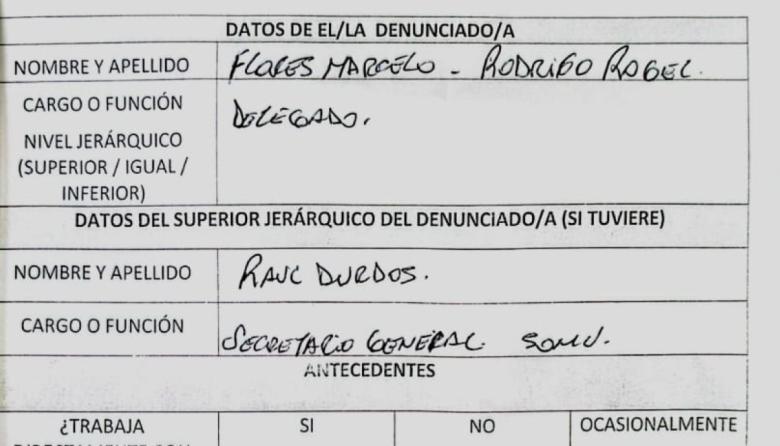 DATOS DE EL/LA DENUNCIADO/A
NOMBRE Y APELLIDO FLORES MARCELO - RODRIGO ROGEL.
CARGO O FUNCIÓN DELEGADO.
NIVEL JERÁRQUICO
(SUPERIOR / IGUAL /
INFERIOR)
DATOS DEL SUPERIOR JERÁRQUICO DEL DENUNCIADO/A (SI TUVIERE)
NOMBRE Y APELLIDO RAUL DURDOS.
CARGO O FUNCIÓN SECRETARIO GENERAL SOMU.
ANTECEDENTES
¿TRABAJA SI NO OCASIONALMENTE